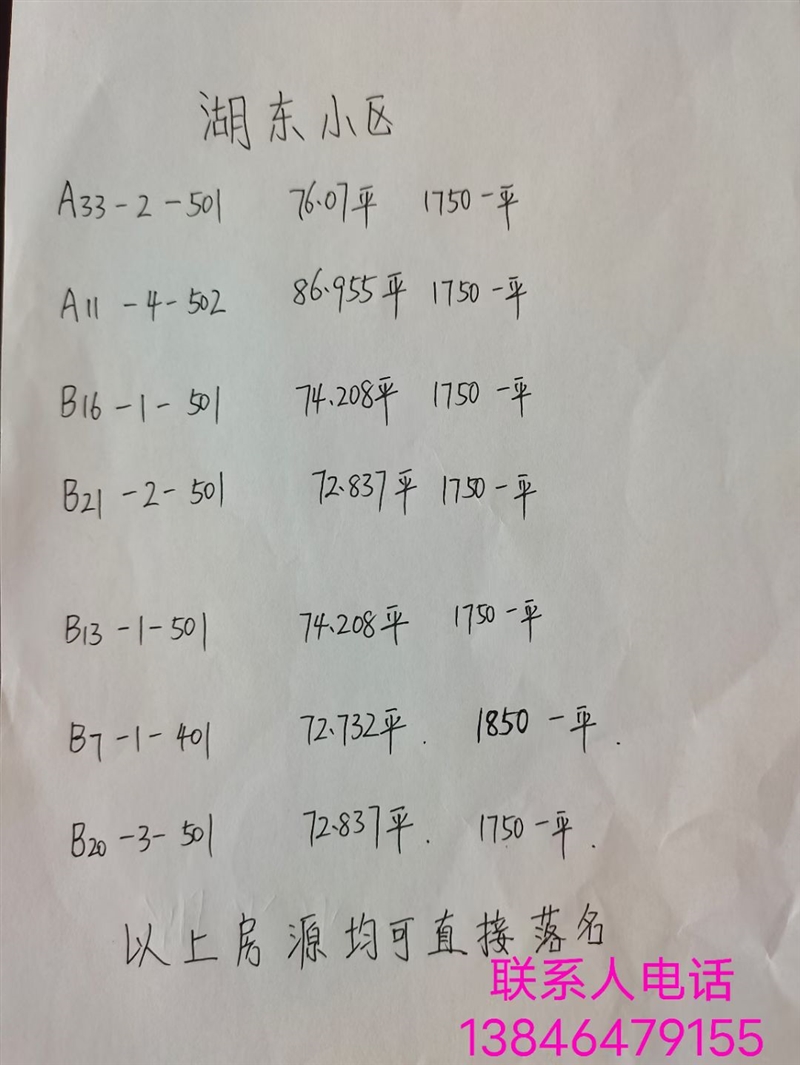 湖东小区
A33-2-501 76.07平 1750一平
A11-4-502 86.955平 1750一平
B16-1-501 74.208平 1750一平
B21-2-501 72.837平 1750一平
B13-1-501 74.208平 1750一平
B7-1-401 72.732平. 1850一平.
B20-3-501 72.837平. 1750一平.
以上房源均可直接落名
联系人电话
13846479155